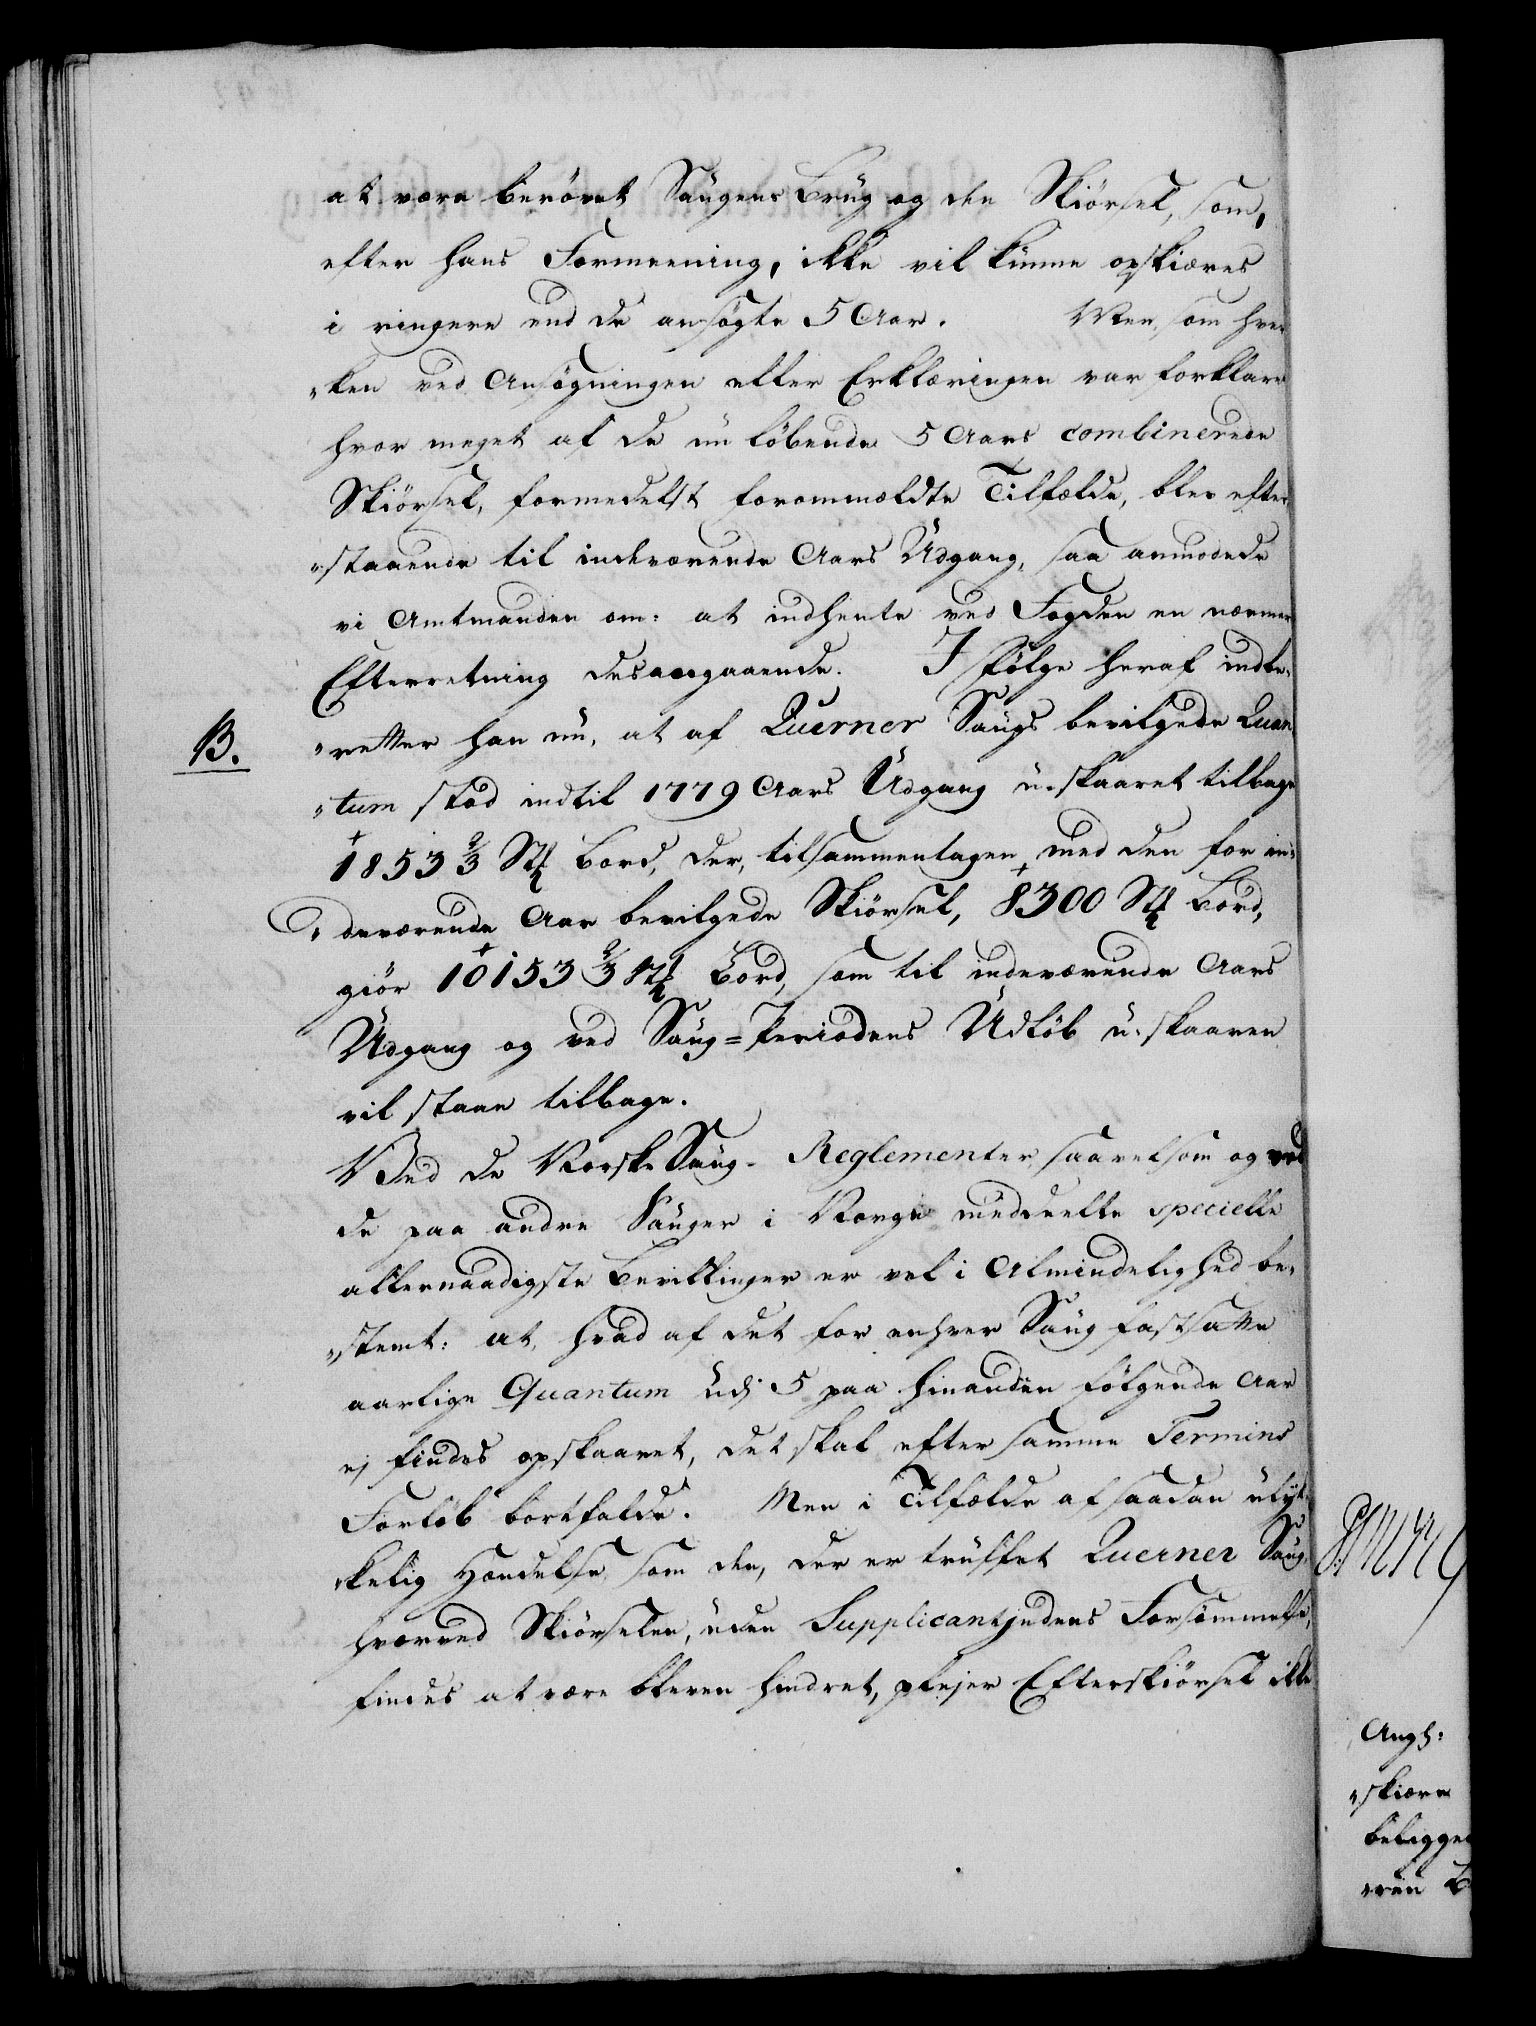 at være berövet Saugens Brug og den Skiörsel, som,
efter hans Formeening, ikke vil kunne opskiæres
i ringere end de ansögte 5 Aar. Men, som hver¬
„ken ved Ansögningen eller Erklæringen var forklaret
hvor meget af de nu löbende 5 Aars combinerede
Skiörsel, formedelst forommeldte Tilfælde, blev efter¬
„staaende til indeværende Aars Udgang, saa anmodede
vi Amtmanden om: at indhente ved Fogden en nærmere
Efterretning desangaaende. I Fölge heraf indbe¬
B. „retter han nu, at af Querner Saugs bevilgede Quan
„tum stod indtil 1779 Aars Udgang u-skaaret tilbage
1853 2/3 Stk Bord, der, tilsammentagen med den for in¬
„deværende Aar bevilgede Skiörsel, 8300 Stk Bord,
giör 10153 2/3 Stk Bord, som til indeværende Aars
Udgang og ved Saug=Periodens Udlöb u-skaaren
vil staae tilbage.
Ved de Norske Saug-Reglementer, saavelsom og ved
de paa andre Sauger i Norge meddeelte specielle
allernaadigste Bevillinger er vel i Almindelighed be¬
„stemt: at, hvad af det for enhver Saug fastsatte
aarlige Quantum udj 5 paa hinanden fölgende Aar
ej findes opskaaret, det skal efter samme Termins
Forlöb bortfalde. Men i Tilfælde af saadan ulyk¬
„kelig Hændelse, som den, der er truffet Querner Saug,
hvorved Skiörselen, uden Supplicantindens Forsömmelse,
findes at være bleven hindret, plejer Efterskiörsel ikke
Angh:
„skiære
beligge